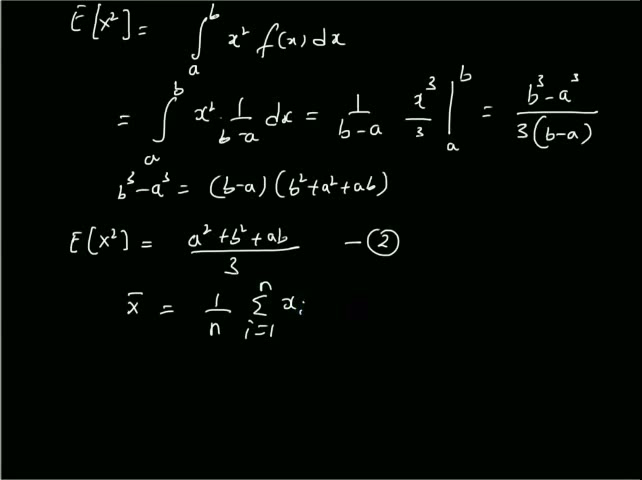 E[x²] = ∫ₐᵇ x² f(x) dx
= ∫ₐᵇ x² · 1/(b-a) dx = 1/(b-a) x³/3 |ₐᵇ = (b³-a³)/(3(b-a))
b³-a³ = (b-a)(b²+a²+ab)
E[x²] = (a²+b²+ab)/3 — ②
x̄ = 1/n Σᵢ₌₁ⁿ xᵢ